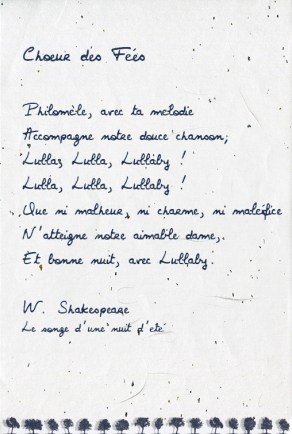 Choeur des Féés
Philomèle, avec ta mélodie
Accompagne notre douce chanson;
Lulla, Lulla, Lullaby !
Lulla, Lulla, Lullaby !
Que ni malheur, ni charme, ni maléfice
N'atteigne notre aimable dame,
Et bonne nuit, avec Lullaby.
W. Shakespeare
Le songe d'une nuit d'été